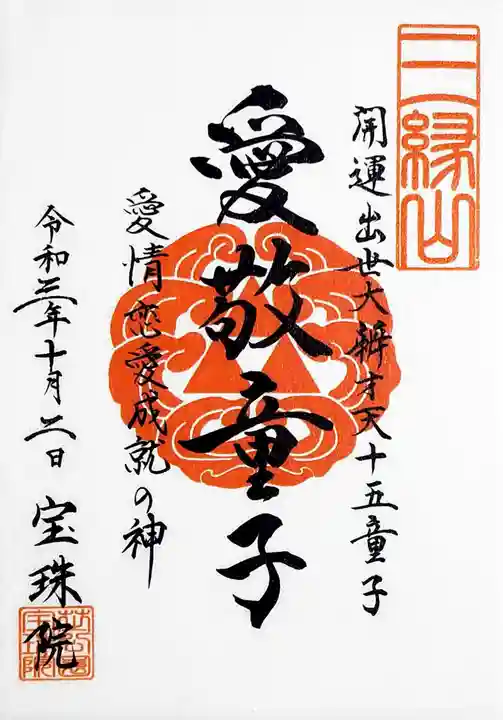 三縁山
開運出世大辨才天十五童子
愛敬童子
愛情恋愛成就の神
令和三年十月二日 宝珠院